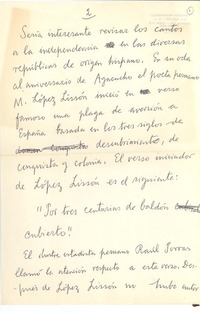 2
Sería interesante revisar los cantos
a la independencia en las diversas
repúblicas de origen hispano. En su oda
al aniversario de Ayacucho el poeta peruano
M. López Lissón inició en verso
famoso una plaga de aversión en
España basada en los tres siglos de
descubrimiento, de
conquista y colonia. El verso iniciador
de López Lissón es el siguiente:
"Por tres centurias de baldón
cubierto"
El ilustre estadista peruano Raúl Porras
llamó la atención respecto a este verso. Des-
pués de López Lissón no hubo autor